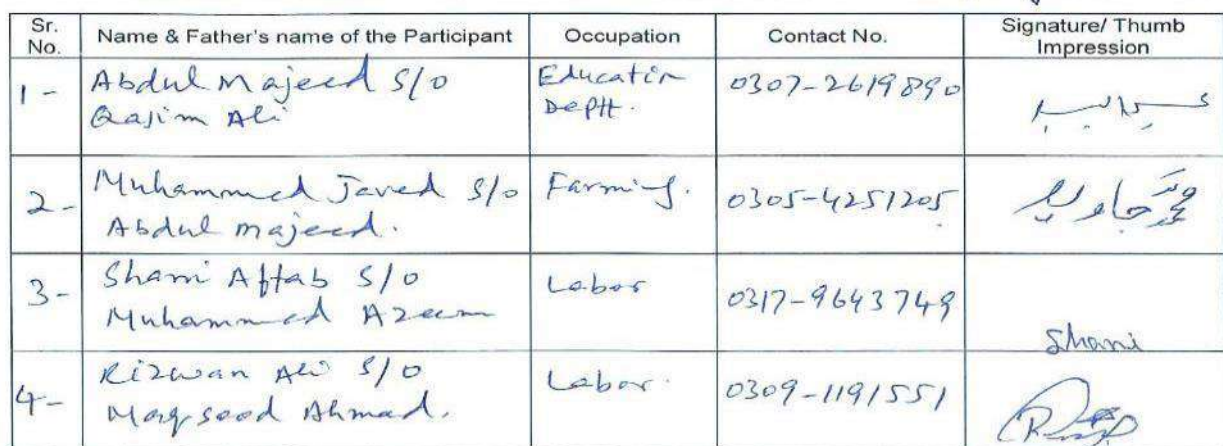 Sr. No.
Name & Father's name of the Participant
Occupation
Contact No.
Signature/ Thumb Impression
1 -
Abdul Majeed S/o
Qasim Ali
Education
Deptt.
0307-2619890
2 -
Muhammed Javed S/o
Abdul majeed.
Farming.
0305-4251205
محمد جاوید
3 -
Shani Aftab S/o
Muhammed Azeem
Labor
0317-9643749
Shani
4 -
Rizwan Ali S/o
Maqsood Ahmad.
Labor.
0309-1191551